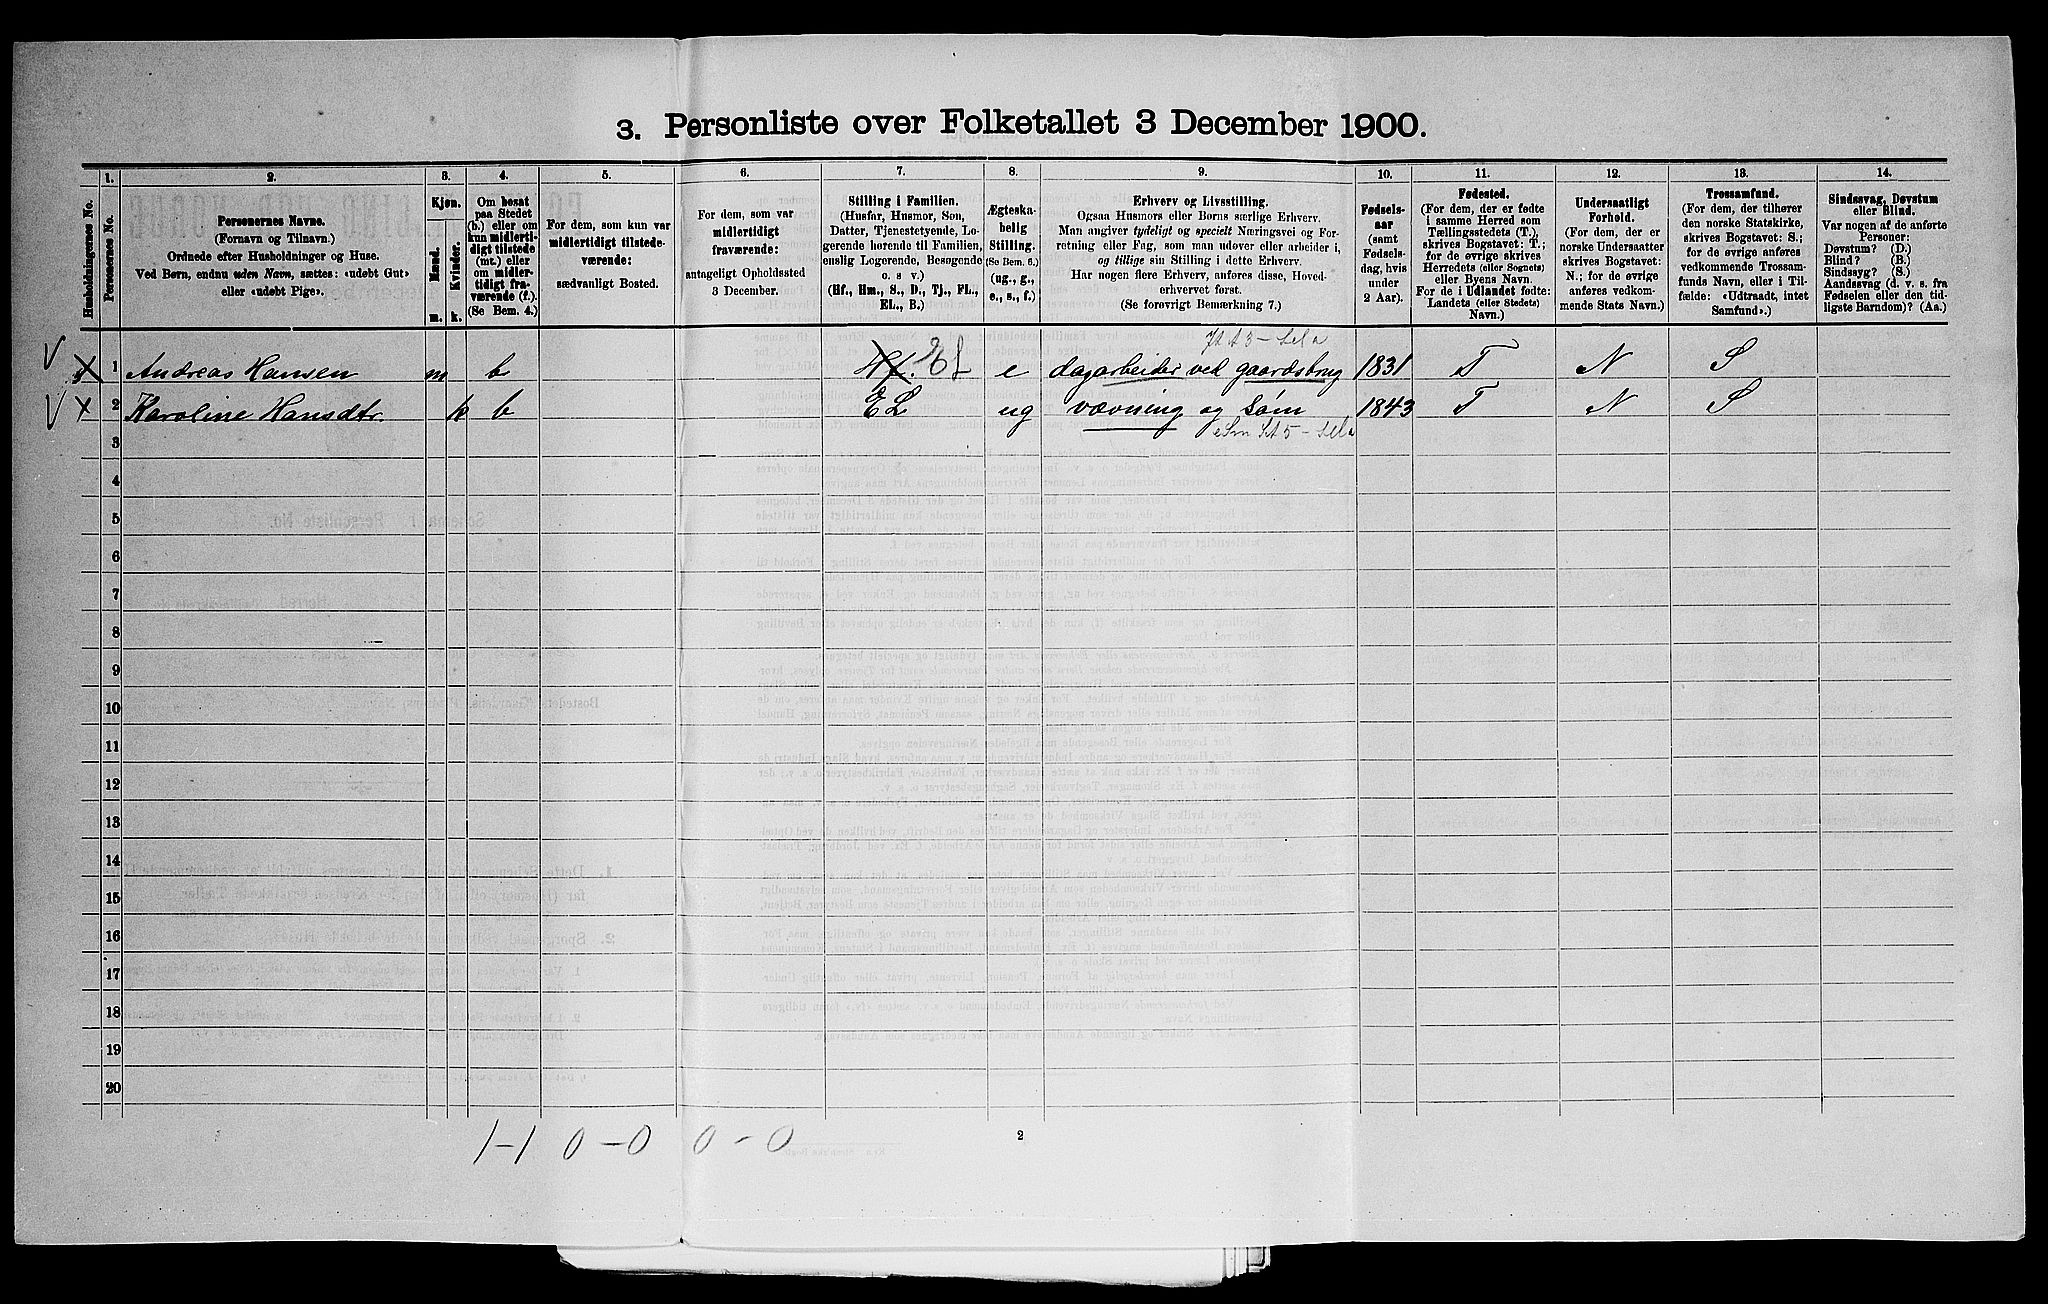 3. Personliste over Folketallet 3 December 1900.
Husholdningernes No.
1. Personernes No.
2. Personernes Navne.
(Fornavn og Tilnavn.)
Ordnede efter Husholdninger og Huse.
Ved Børn, endnu uden Navn, sættes: «udøbt Gut»
eller «udøbt Pige».
3. Kjøn.
Mænd. Kvinder.
m. k.
4. Om bosat
paa Stedet
(b.) eller om
kun midlerti-
digt tilstede
(mt.) eller
om midler-
tidigt fra-
værende (f.).
(Se Bem. 4.)
5. For dem, som kun var
midlertidigt tilstede-
værende:
sædvanligt Bosted.
6. For dem, som var
midlertidigt
fraværende:
antageligt Opholdssted
3 December.
7. Stilling i Familien.
(Husfar, Husmor, Søn,
Datter, Tjenestetyende, Lo-
gerende hørende til Familien,
enslig Logerende, Besøgende
o. s v.)
(Hf., Hm., S., D., Tj., FL.,
EL., B.)
8. Ægteska-
belig
Stilling.
(Se Bem. 6.)
(ug., g.,
e., s., f.)
9. Erhverv og Livsstilling.
Ogsaa Husmors eller Børns særlige Erhverv.
Man angiver tydeligt og specielt Næringsvei og For-
retning eller Fag, som man udøver eller arbeider i,
og tillige sin Stilling i dette Erhverv.
Har nogen flere Erhverv, anføres disse, Hoved-
erhvervet først.
(Se forøvrigt Bemærkning 7.)
10. Fødsels-
aar
(samt
Fødsels-
dag, hvis
under
2 Aar).
11. Fødested.
(For dem, der er fødte
i samme Herred som
Tællingsstedets (T.),
skrives Bogstavet: T.;
for de øvrige skrives
Herredets (eller Sognets)
eller Byens Navn.
For de i Udlandet fødte:
Landets (eller Stedets)
Navn.)
12. Undersaatligt
Forhold.
(For dem, der er
norske Undersaatter
skrives Bogstavet:
N.; for de øvrige
anføres vedkom-
mende Stats Navn.)
13. Trossamfund.
(For dem, der tilhører
den norske Statskirke,
skrives Bogstavet: S.;
for de øvrige anføres
vedkommende Trossam-
funds Navn, eller i Til-
fælde: «Udtraadt, intet
Samfund».)
14. Sindssvag, Døvstum
eller Blind.
Var nogen af de anførte
Personer:
Døvstum? (D.)
Blind? (B.)
Sindssyg? (S.)
Aandssvag (d. v. s. fra
Fødselen eller den tid-
ligste Barndom)? (Aa.)
1 Andreas Hansen m b Hf. El e dagarbeider ved gaardsbrug 1831 T N S
2 Karoline Hansdtr. k b EL ug vævning og søm 1843 T N S
3
4
5
6
7
8
9
10
11
12
13
14
15
16
17
18
19
20
1-1 0-0 0-0
2